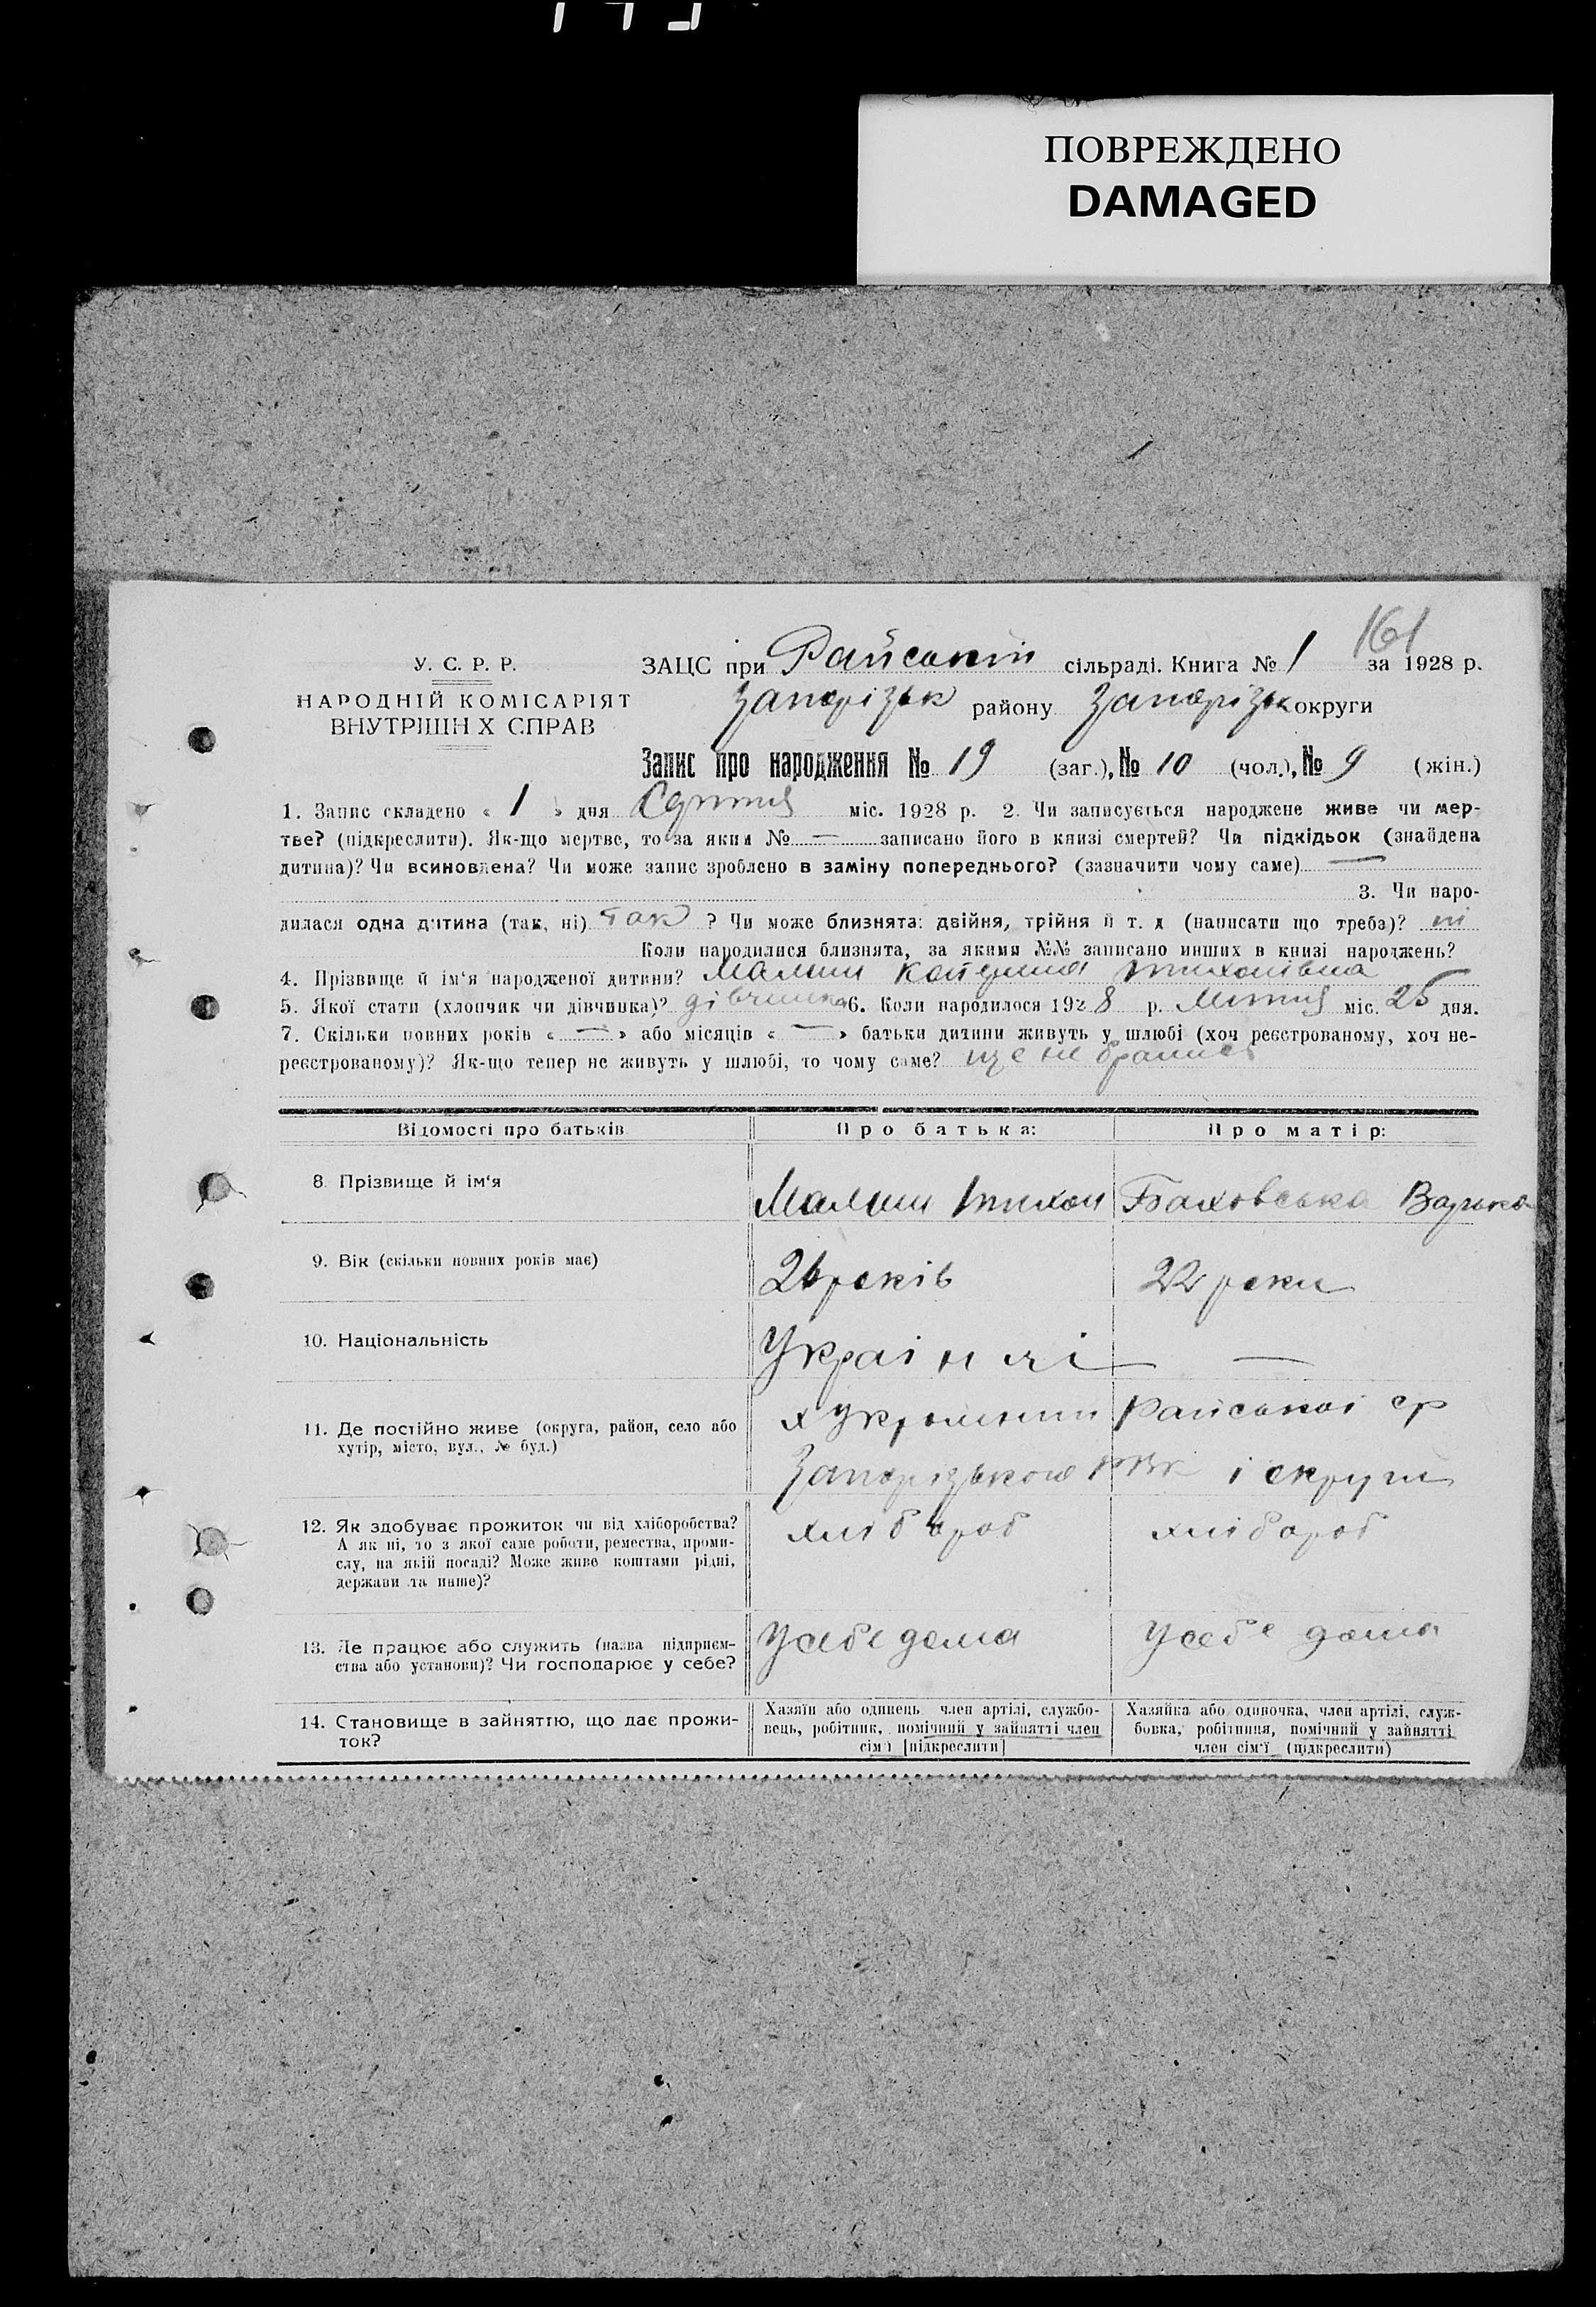 ПОВРЕЖДЕНО
DAMAGED
161
У. С. Р. Р.
НАРОДНІЙ КОМІСАРІЯТ
ВНУТРІШН Х СПРАВ
ЗАЦС при Райській сільраді. Книга № 1 за 1928 р.
Запорізьк району Запорізьк округи
Запис про народження № 19 (заг.), № 10 (чол.), № 9 (жін.)
1. Запис складено « 1 » дня міс. 1928 р. 2. Чи записується народжене живе чи мер-
тве? (підкреслити). Як-що мертве, то за яким № — записано його в книзі смертей? Чи підкідьок (знайдена
дитина)? Чи всиновлена? Чи може запис зроблено в заміну попереднього? (зазначити чому саме) —
3. Чи наро-
дилася одна дитина (так, ні) так ? Чи може близнята: двійня, трійня й т. д (написати що треба)? ні
Коли народилися близнята, за якими №№ записано инших в книзі народжень?
4. Прізвище й ім'я народженої дитини? Малиш Катерина Тихонівна
5. Якої стати (хлопчик чи дівчинка)? дівчинка 6. Коли народилося 1928 р. міс. 25 дня.
7. Скільки повних років « — » або місяців « — » батьки дитини живуть у шлюбі (хоч реєстрованому, хоч не-
реєстрованому)? Як-що тепер не живуть у шлюбі, то чому саме? ще не брались
Відомості про батьків
Про батька:
Про матір:
8. Прізвище й ім'я
Малиш Тихон
Баховська
9. Вік (скільки повних років має)
26 років
22 роки
10. Національність
Українці —
11. Де постійно живе (округа, район, село або
хутір, місто, вул., № буд.)
х Райської ср
Запорізького РВК і округи
12. Як здобуває прожиток чи від хліборобства?
А як ні, то з якої саме роботи, ремества, проми-
слу, на якій посаді? Може живе коштами рідні,
держави та инше)?
хлібороб
хлібороб
13. Де працює або служить (назва підприєм-
ства або установи)? Чи господарює у себе?
У себе дома
У себе дома
14. Становище в зайняттю, що дає прожи-
ток?
Хазяїн або одинець член артілі, службо-
вець, робітник, помічний у зайнятті член
сім'ї [підкреслити]
Хазяйка або одиночка, член артілі, служ-
бовка, робітниця, помічний у зайнятті
член сім'ї (підкреслити)